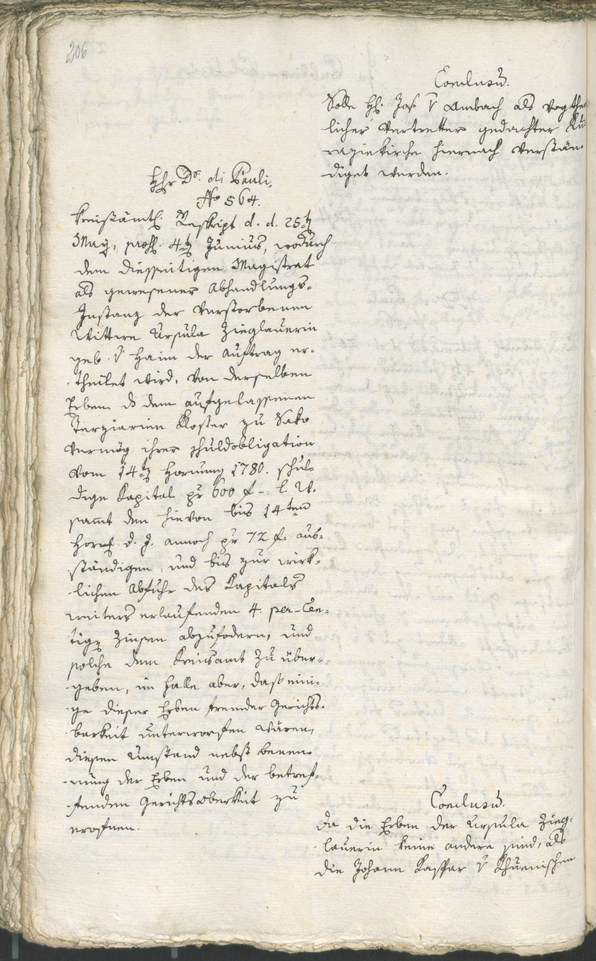 206
Conclusum.
Solle H. Jos. v Ambach als Vogthe-
licher Vertretter gedachter Ku-
razinkirche hiernach verstän-
diget werden.
Hhr Dr. di Pauli.
No 564.
Kreisämtl. Reskript d. d. 25t
May, präs. 4t Junius, wodurch
dem diesseitigen Magistrat
als gewesener Abhandlungs-
Instanz der verstorbenen
Wittwe Ursula Zieglauerin
geb. v Haim der Auftrag er-
theilet wird, von derselben
Erben die dem aufgelassenen
Terziarien Kloster zu
vermög ihrer Schuldobligation
vom 14t Hornung 1780. schul-
dige Kapital pr 600 f
samt den hievon bis 14ten
Horn. d. J. annoch pr 72 f. aus-
ständigen, und bis zur wirk-
lichen Abfuhr des Kapitals
weiters erlaufenden 4 per-Cen-
tige Zinsen abzufodern, und
solche dem Kreisamt zu über-
geben, im Falle aber, dass eini-
ge dieser Erben fremder Gerichts-
barkeit unterworfen wären,
diesen Umstand nebst benen-
nung der Erben und der betref-
fenden Gerichtsoberkeit zu
erofnen.
Conclusum.
Da die Erben der Ursula Zieg-
lauerin keine andere sind, als
die Johann Kaspar v Khuenischen